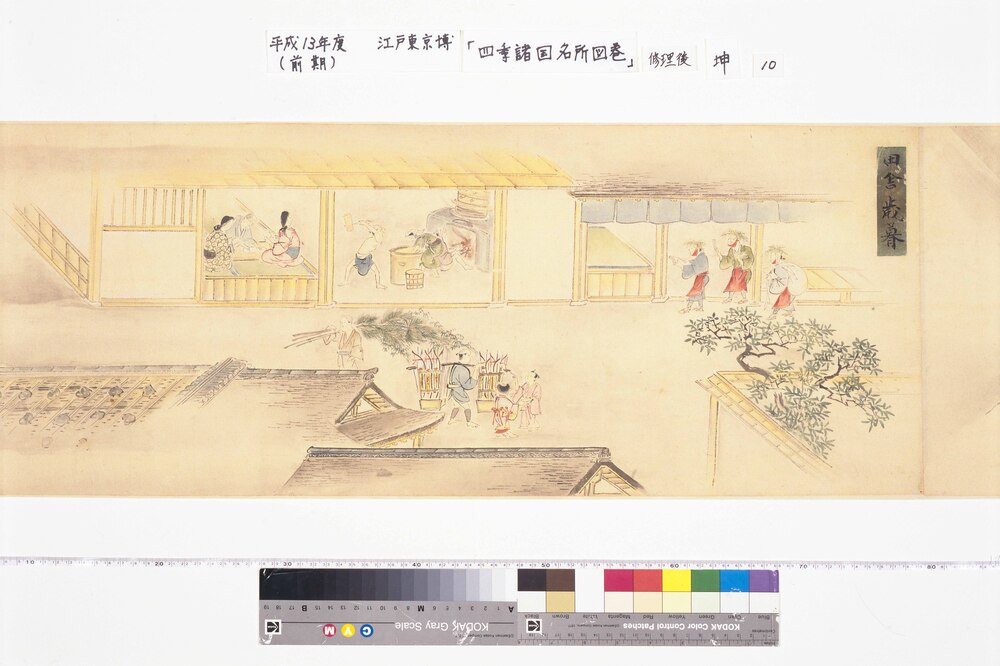 平成13年度
(前期)
江戸東京博
「四季諸国名所図巻」
修理後
坤
10
田舎歳暮
10
20
30
40
50
60
70
80
KODAK Gray Scale
C Y M
A 1 2 3 4 5 6 M 8 9 10 11 12 13 14 15 B 17 18 19
KODAK Color Control Patches
Blue Cyan Green Yellow Red Magenta White Brown Black